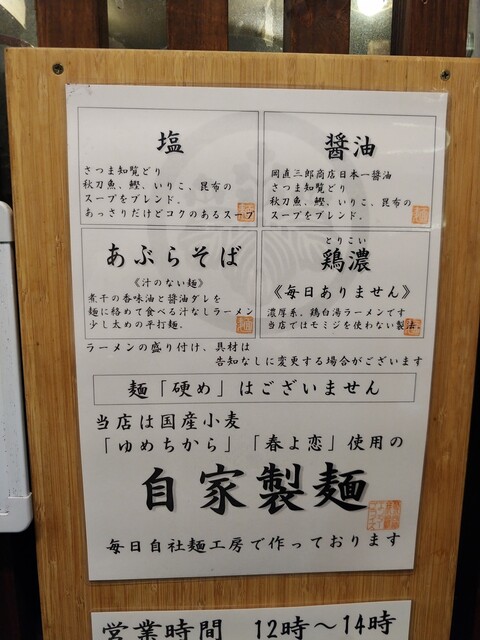 塩
さつま知覧どり
秋刀魚、鰹、いりこ、昆布の
スープをブレンド。
あっさりだけどコクのあるスープ
醤油
岡直三郎商店日本一醤油
さつま知覧どり
秋刀魚、鰹、いりこ、昆布の
スープをブレンド。
あぶらそば
《汁のない麺》
煮干の香味油と醤油ダレを
麺に絡めて食べる汁なしラーメン
少し太めの平打麺。
とりこい
鶏濃
《毎日ありません》
濃厚系、鶏白湯ラーメンです
当店ではモミジを使わない製法。
ラーメンの盛り付け、具材は
告知なしに変更する場合がございます
麺「硬め」はございません
当店は国産小麦
「ゆめちから」「春よ恋」使用の
自家製麺
毎日自社麺工房で作っております
営業時間 12時～14時